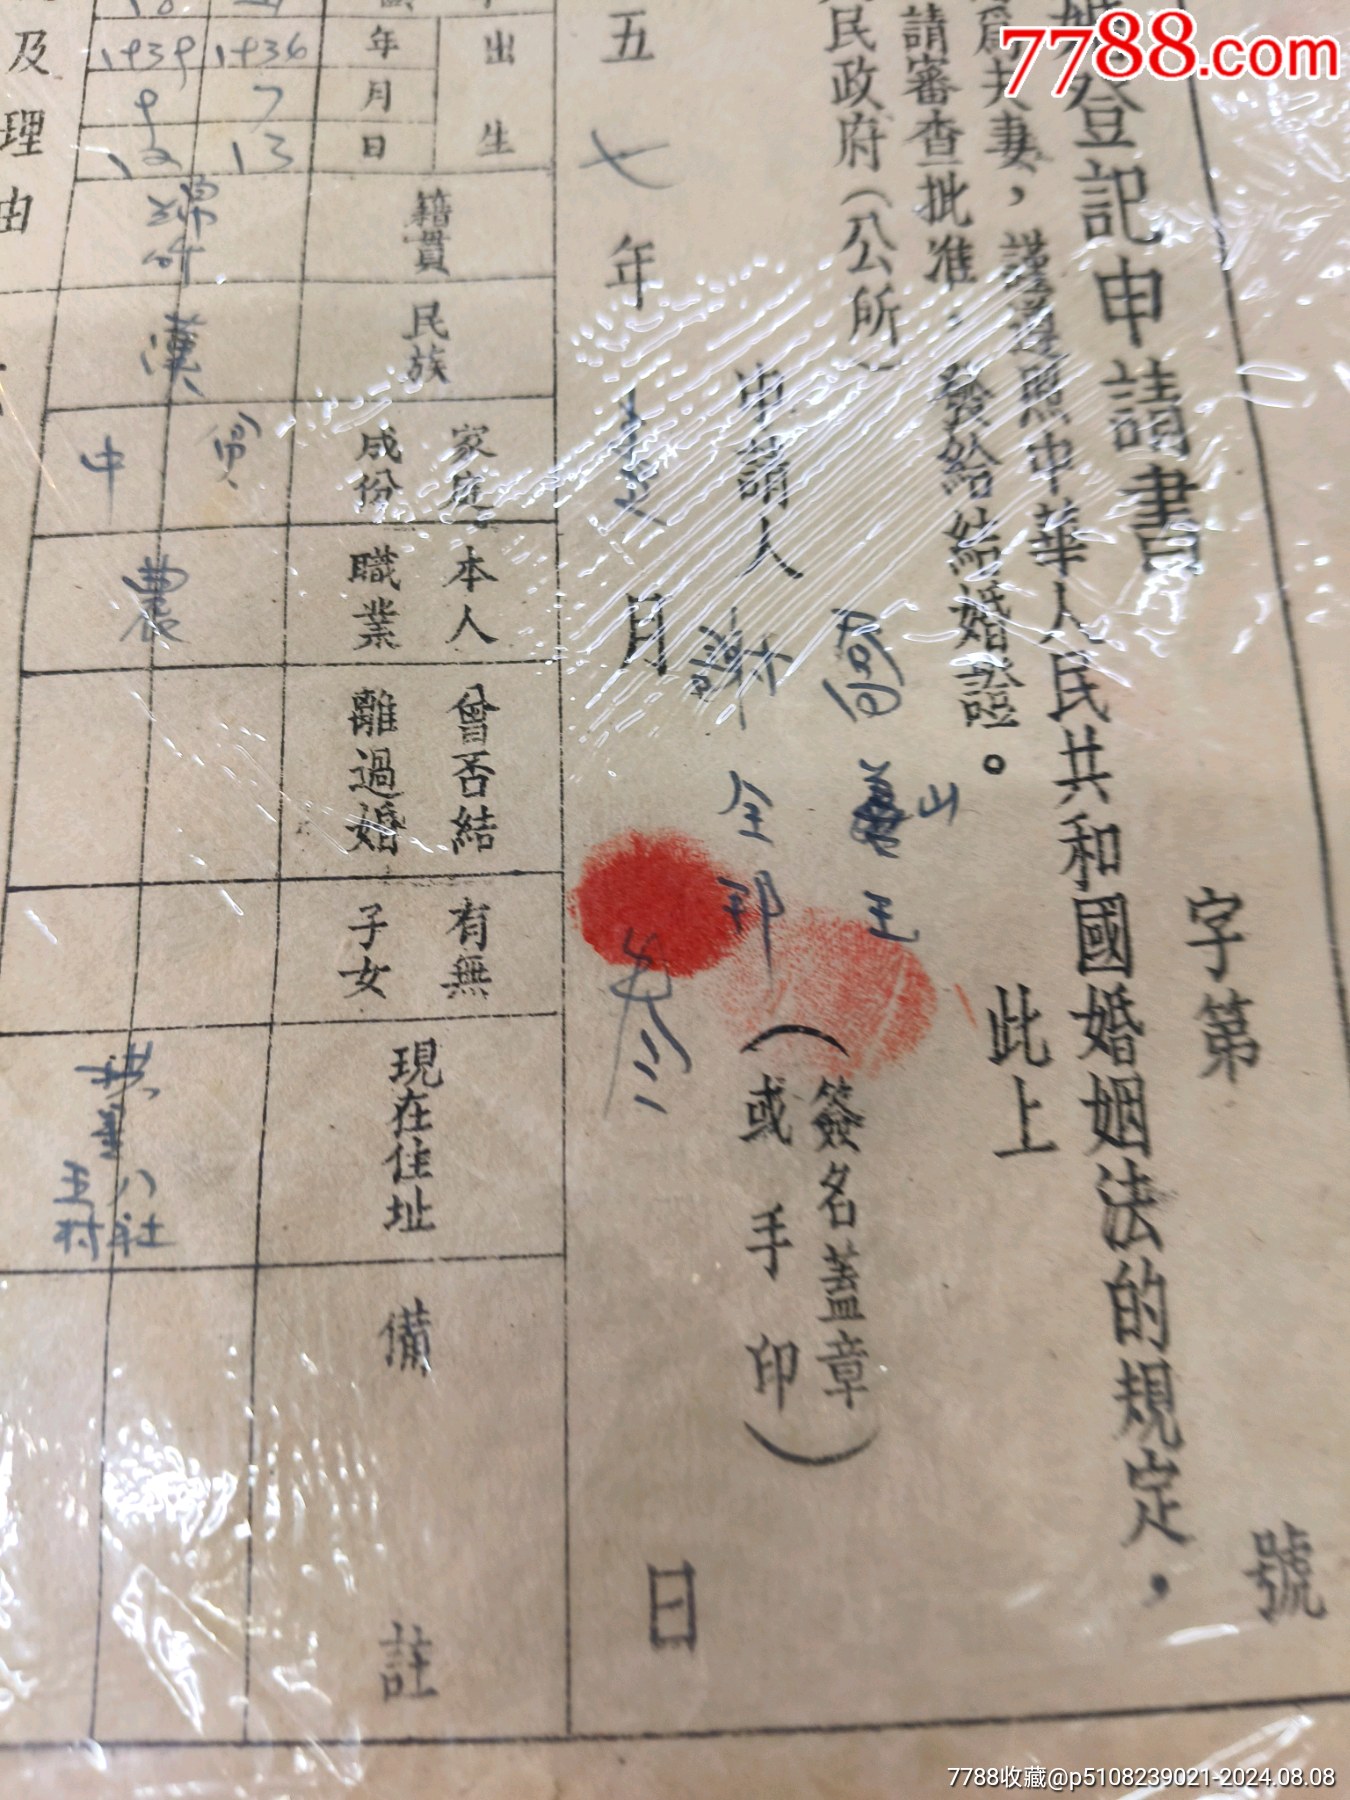 7788.com
字第 號
婚登記申請書
爲夫妻，謹遵照中華人民共和國婚姻法的規定，
請審查批准，發給結婚證。 此上
民政府（公所）
申請人
謝全邦
（簽名蓋章
或手印）
五七年 月 日
出生
年 月 日
籍貫
民族
家庭成份
本人職業
曾否結離過婚
有無子女
現在住址
備註
1936 7 13
1939 9 12
漢
貧
中
農
八社
王村
及理由
7788收藏@p5108239021-2024.08.08